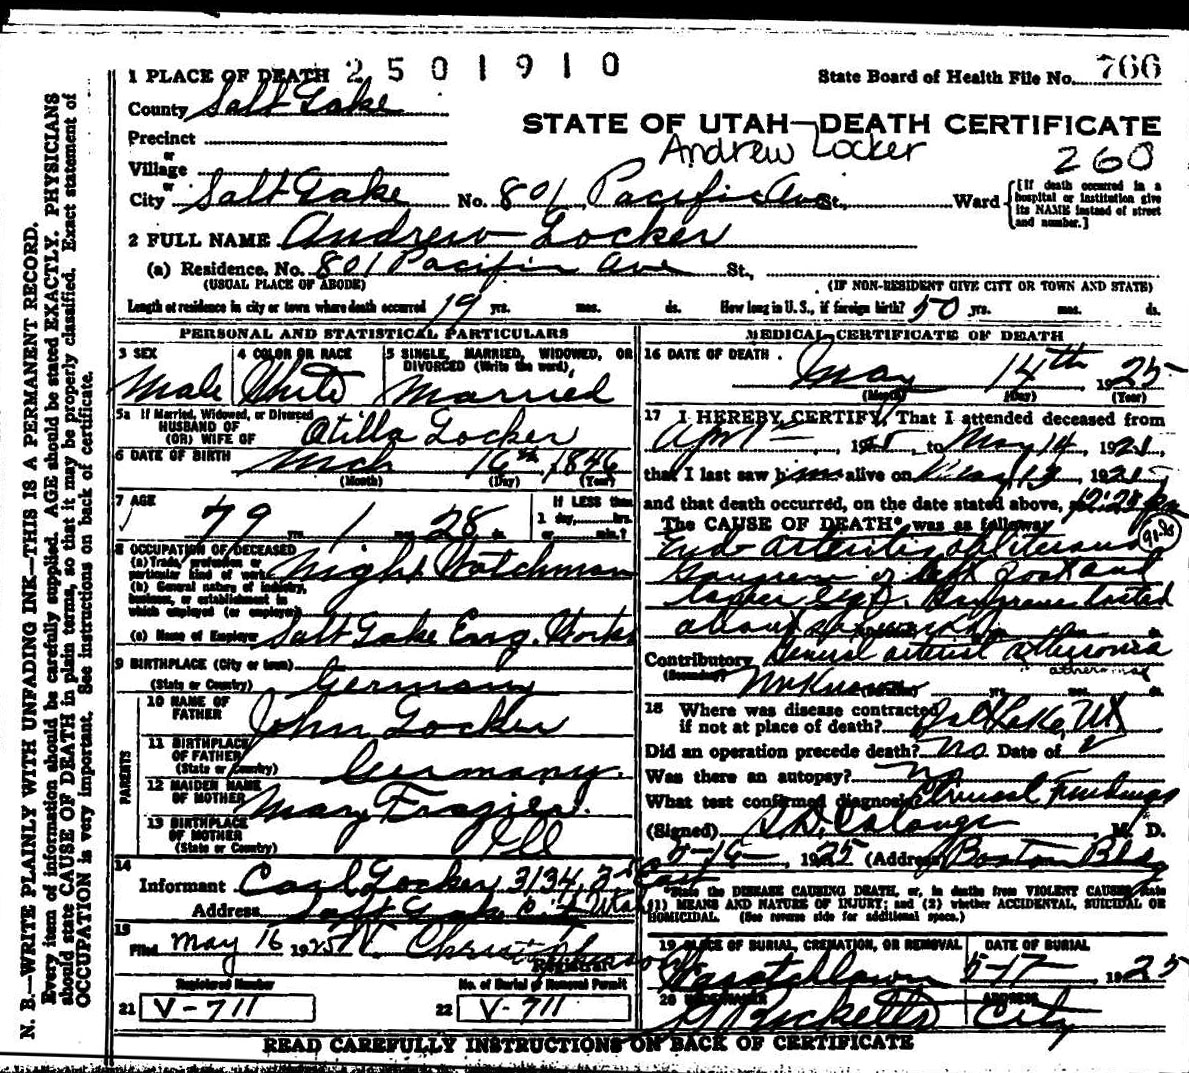 1 PLACE OF DEATH 2501910
State Board of Health File No. 766
County Salt Lake
STATE OF UTAH—DEATH CERTIFICATE
Precinct
Andrew Locker 260
or
Village
or
City Salt Lake No. 801 Pacific Ave St., Ward [If death occurred in a hospital or institution give its NAME instead of street and number.]
2 FULL NAME Andrew Locker
(a) Residence. No. 801 Pacific Ave St.,
(USUAL PLACE OF ABODE) (IF NON-RESIDENT GIVE CITY OR TOWN AND STATE)
Length of residence in city or town where death occurred 19 yrs. mos. ds. How long in U. S., if foreign birth? 50 yrs. mos. ds.
PERSONAL AND STATISTICAL PARTICULARS
3 SEX 4 COLOR OR RACE 5 SINGLE, MARRIED, WIDOWED, OR
DIVORCED (Write the word)
Male White Married
5a If Married, Widowed, or Divorced
HUSBAND OF
(OR) WIFE OF Otilla Locker
6 DATE OF BIRTH Mch 16th 1846
(Month) (Day) (Year)
7 AGE IF LESS than
79 yrs. 1 mos. 28 ds. 1 day, hrs.
or min.?
8 OCCUPATION OF DECEASED
(a) Trade, profession or
particular kind of work Night Watchman
(b) General nature of industry,
business, or establishment in
which employed (or employer)
(c) Name of Employer Salt Lake Eng. Works
9 BIRTHPLACE (City or town)
(State or Country) Germany
PARENTS
10 NAME OF
FATHER John Locker
11 BIRTHPLACE
OF FATHER
(State or Country) Germany.
12 MAIDEN NAME
OF MOTHER Mary Frazier.
13 BIRTHPLACE
OF MOTHER
(State or Country) Ill
14
Informant Carl Locker, 3134, 2nd East
Address Salt Lake City Utah
15
Filed May 16 1925
Registrar
Registered Number No. of Burial or Removal Permit
21 V-711 22 V-711
MEDICAL CERTIFICATE OF DEATH
16 DATE OF DEATH
May 14th 1925
(Month) (Day) (Year)
17 I HEREBY CERTIFY, That I attended deceased from
April, 192, to May 14, 192,
that I last saw him alive on May 13, 192
and that death occurred, on the date stated above, 12:25 pm
The CAUSE OF DEATH* was as follows
Endo Arteritis obliterans
Gangrene of left foot and
lower leg. Gangrene lasted
about
Contributory General arterial atheroma
(Secondary) atheroma
Unknown yrs. mos. ds.
18 Where was disease contracted
if not at place of death? Salt Lake, Ut
Did an operation precede death? no Date of
Was there an autopsy? no
What test confirmed diagnosis? Clinical Findings
(Signed) M. D.
1925 (Address) Boston Bldg
*State the DISEASE CAUSING DEATH, or, in deaths from VIOLENT CAUSES, state
(1) MEANS AND NATURE OF INJURY; and (2) whether ACCIDENTAL, SUICIDAL OR
HOMICIDAL. (See reverse side for additional space.)
19 PLACE OF BURIAL, CREMATION, OR REMOVAL DATE OF BURIAL
Wasatch Lawn 5-17 1925
20 UNDERTAKER ADDRESS
Ricketts City
READ CAREFULLY INSTRUCTIONS ON BACK OF CERTIFICATE
N. B.—WRITE PLAINLY WITH UNFADING INK—THIS IS A PERMANENT RECORD.
Every item of information should be carefully supplied. AGE should be stated EXACTLY. PHYSICIANS
should state CAUSE OF DEATH in plain terms, so that it may be properly classified. Exact statement of
OCCUPATION is very important. See instructions on back of certificate.